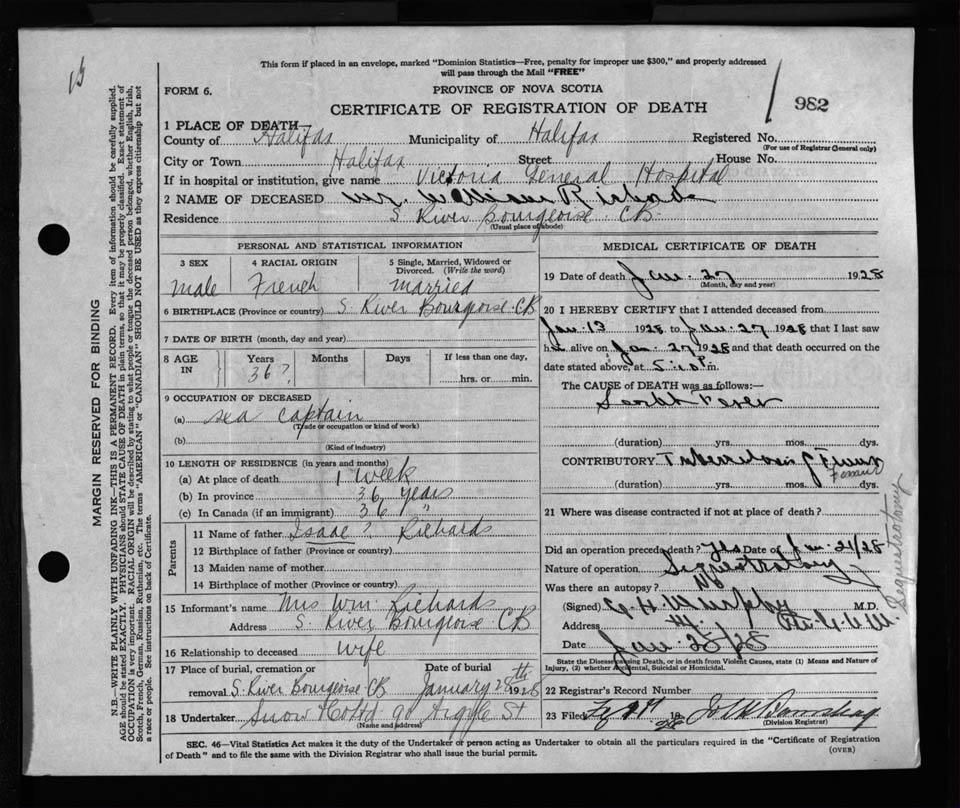 15
This form if placed in an envelope, marked "Dominion Statistics—Free, penalty for improper use $300," and properly addressed
will pass through the Mail "FREE"
FORM 6.
PROVINCE OF NOVA SCOTIA
CERTIFICATE OF REGISTRATION OF DEATH
982
1 PLACE OF DEATH—
County of Halifax Municipality of Halifax Registered No.
(For use of Registrar General only)
City or Town Halifax Street House No.
If in hospital or institution, give name Victoria General Hospital
2 NAME OF DECEASED Mr. William Richards
Residence S River Bourgeoise CB
(Usual place of abode)
PERSONAL AND STATISTICAL INFORMATION
3 SEX
4 RACIAL ORIGIN
5 Single, Married, Widowed or
Divorced. (Write the word)
Male French Married
6 BIRTHPLACE (Province or country) S. River Bourgoise CB
7 DATE OF BIRTH (month, day and year)
8 AGE IN
Years Months Days If less than one day,
36?
hrs. or min.
9 OCCUPATION OF DECEASED
(a) sea captain
(Trade or occupation or kind of work)
(b)
(Kind of industry)
10 LENGTH OF RESIDENCE (in years and months)
(a) At place of death 1 Week
(b) In province 36 years
(c) In Canada (if an immigrant) 36 "
Parents
11 Name of father Isaac? Richards
12 Birthplace of father (Province or country)
13 Maiden name of mother
14 Birthplace of mother (Province or country)
15 Informant's name Mrs Wm. Richards
Address S. River Bourgeoise CB
16 Relationship to deceased wife
17 Place of burial, cremation or
Date of burial
removal S. River Bourgeoise CB January 28th 1928
18 Undertaker Snow 90 Argyle St
(Name and address)
MEDICAL CERTIFICATE OF DEATH
19 Date of death Jan. 27 1928
(Month, day and year)
20 I HEREBY CERTIFY that I attended deceased from
Jan. 13 1928 to Jan. 27 1928 that I last saw
him alive on Jan. 27 1928 and that death occurred on the
date stated above, at 5:10 P m.
The CAUSE OF DEATH was as follows:
Fever
(duration) yrs. mos. dys.
CONTRIBUTORY Tuberculosis of Femur
Femur
(duration) yrs. mos. dys.
21 Where was disease contracted if not at place of death?
Did an operation precede death? Yes Date of Jan. 24/28
Nature of operation Sequestrotomy
Sequestrotomy
Was there an autopsy? No
(Signed) G. H. Murphy M.D.
Address
Date Jan 28/28
State the Disease causing Death, or in death from Violent Causes, state (1) Means and Nature of
Injury, (2) whether Accidental, Suicidal or Homicidal.
22 Registrar's Record Number
23 Filed 19 28
(Division Registrar)
SEC. 46—Vital Statistics Act makes it the duty of the Undertaker or person acting as Undertaker to obtain all the particulars required in the "Certificate of Registration
of Death" and to file the same with the Division Registrar who shall issue the burial permit.
(OVER)
MARGIN RESERVED FOR BINDING
N.B.—WRITE PLAINLY WITH UNFADING INK—THIS IS A PERMANENT RECORD. Every item of information should be carefully supplied.
AGE should be stated EXACTLY. PHYSICIANS should STATE CAUSE OF DEATH in plain terms, so that it may be properly classified. Exact statement of
OCCUPATION is very important. RACIAL ORIGIN will be described by stating to what people or tongue the deceased person belonged, whether English, Irish,
Scotch, French, German, Russian, Ruthenian, etc. The terms "AMERICAN" or "CANADIAN" SHOULD NOT BE USED as they express citizenship but not
a race or people. See instructions on back of Certificate.